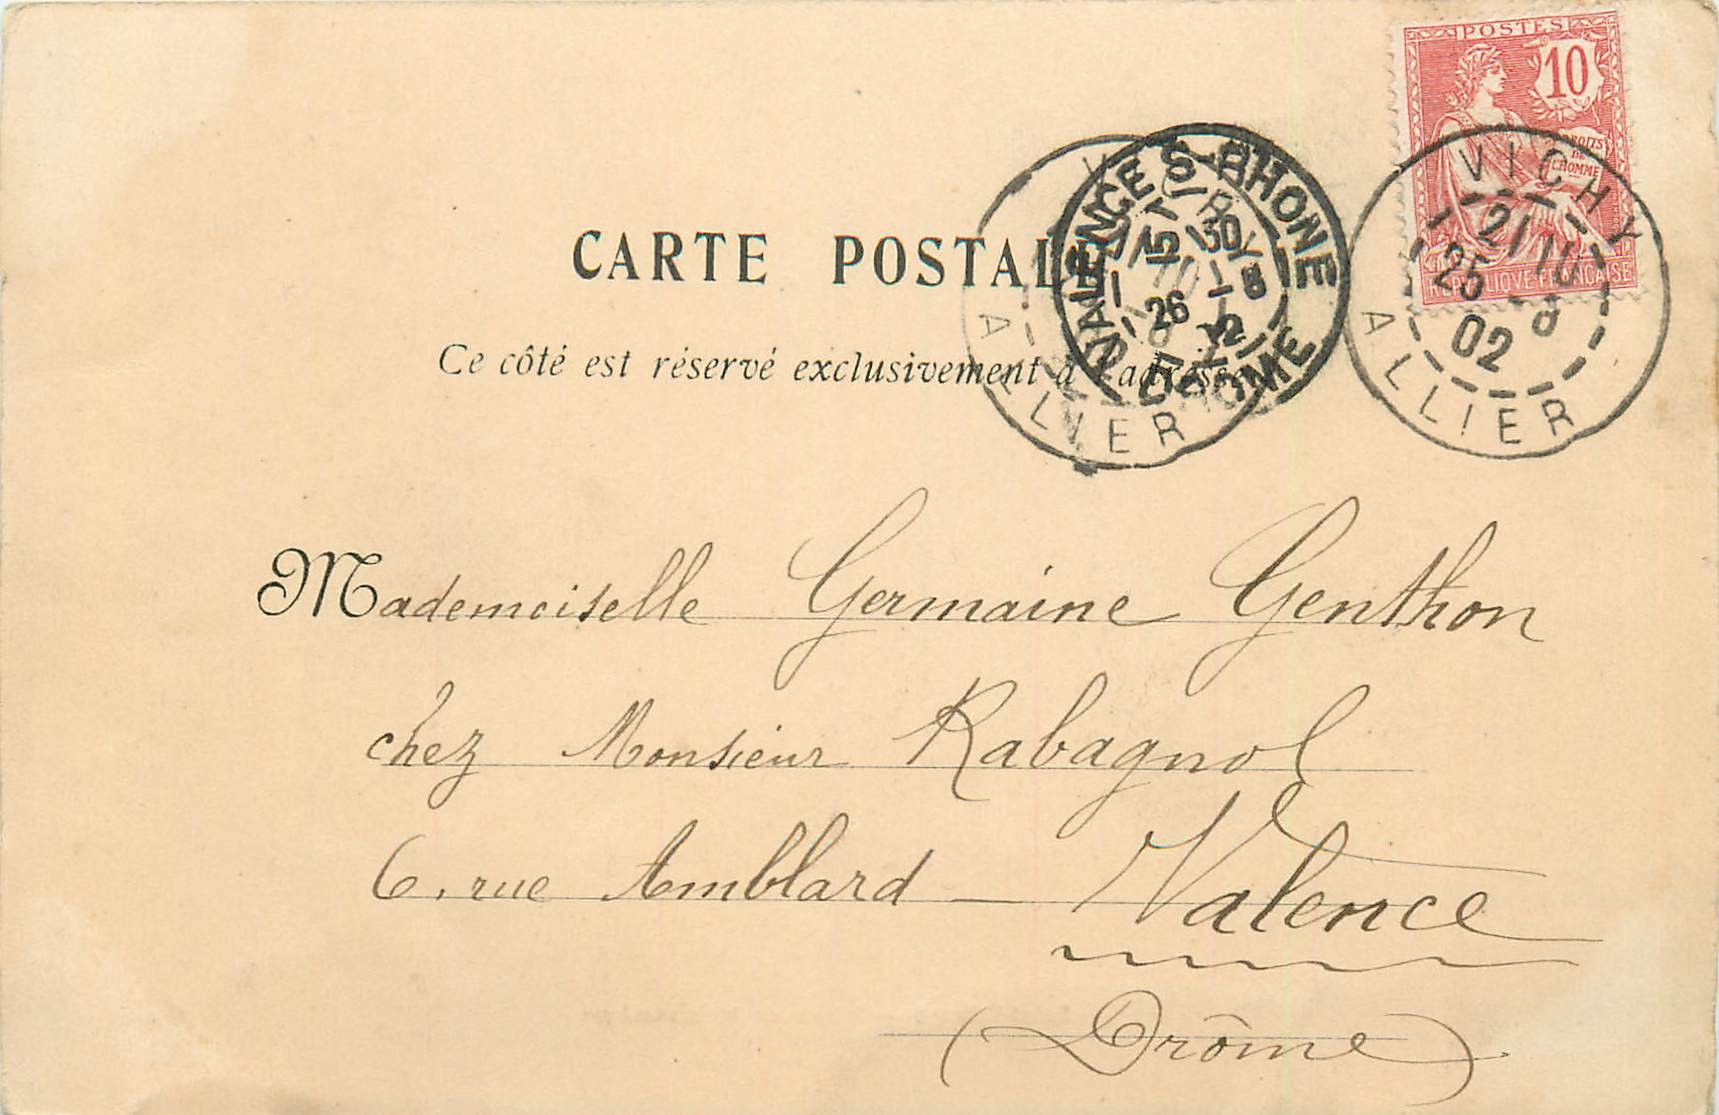 POSTES
10
DROITS
DE
L'HOMME
REPUBLIQUE FRANÇAISE
VICHY
21/10
25 -8
02
ALLIER
VALENCE S-RHONE
15 30
26 -8
02
DROME
ALLIER
CARTE POSTALE
Ce côté est réservé exclusivement à l'adresse
Mademoiselle Germaine Genthon
chez Monsieur Rabagnol
6, rue Amblard — Valence
(Drôme)